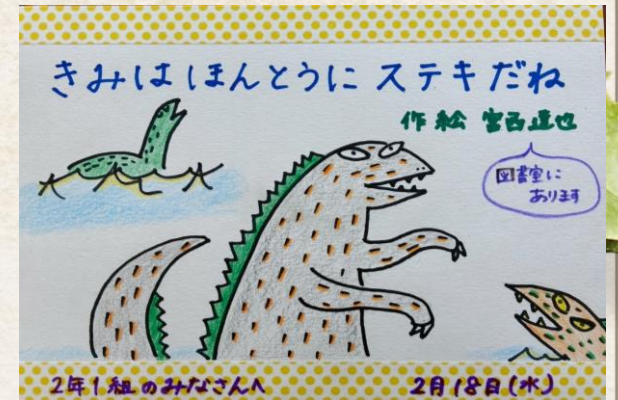 きみはほんとうにステキだね
作 絵 宮西達也
図書室に
あります
2年1組のみなさんへ 2月18日(水)